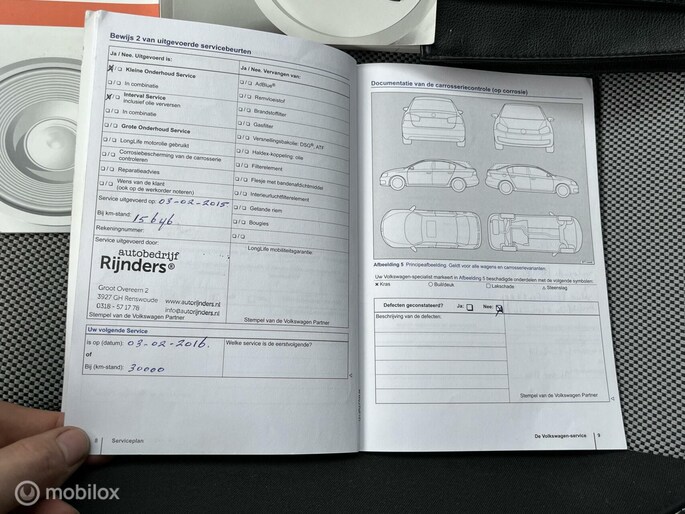 Bewijs 2 van uitgevoerde servicebeurten
Ja / Nee. Uitgevoerd is:
Kleine Onderhoud Service
In combinatie
Interval Service
inclusief olie verversen
In combinatie
Grote Onderhoud Service
LongLife motorolie gebruikt
Corrosiebescherming van de carrosserie
controleren
Reparatieadvies
Wens van de klant
(ook op de werkorder noteren)
Service uitgevoerd op: 03-02-2015
Bij km-stand: 15646
Rekeningnummer:
Service uitgevoerd door:
autobedrijf
Rijnders®
Groot Overeem 2
3927 GH Renswoude www.autorijnders.nl
0318 - 57 17 78 info@autorijnders.nl
Stempel van de Volkswagen Partner
Uw volgende Service
is op (datum): 03-02-2016.
of
Bij (km-stand): 30000
Ja / Nee. Vervangen van:
AdBlue®
Remvloeistof
Brandstoffilter
Gasfilter
Versnellingsbakolie: DSG®, ATF
Haldex-koppeling: olie
Filterelement
Flesje met bandenafdichtmiddel
Interieurluchtfilterelement
Getande riem
Bougies
LongLife mobiliteitsgarantie:
Stempel van de Volkswagen Partner
Welke service is de eerstvolgende?
8 Serviceplan
Documentatie van de carrosseriecontrole (op corrosie)
Afbeelding 5 Principeafbeelding. Geldt voor alle wagens en carrosserievarianten.
Uw Volkswagen-specialist markeert in Afbeelding 5 beschadigde onderdelen met de volgende symbolen:
× Kras ○ Buil/deuk □ Lakschade △ Steenslag
Defecten geconstateerd? Ja: Nee:
Beschrijving van de defecten:
Stempel van de Volkswagen Partner
De Volkswagen-service 9
mobilox